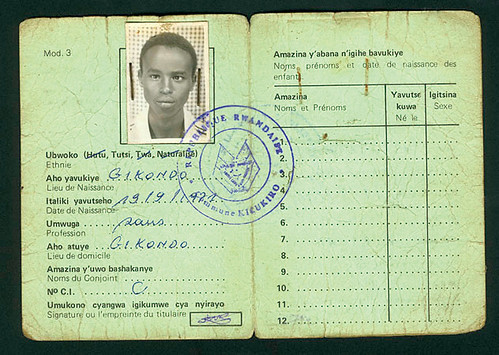 Mod. 3
Ubwoko (Hutu, Tutsi, Twa, Naturalisé)
Ethnie
Aho yavukiye GIKONDO
Lieu de Naissance
Italiki yavutseho
Date de Naissance
Umwuga sans
Profession
Aho atuye GIKONDO
Lieu de domicile
Amazina y'uwo bashakanye
Noms du Conjoint
Nº C.I.
Umukono cyangwa igikumwe cya nyirayo
Signature ou l'empreinte du titulaire
REPUBLIQUE RWANDAISE
Commune KICUKIRO
Amazina y'abana n'igihe bavukiye
Noms, prénoms et date de naissance des
enfants
Amazina
Noms et Prénoms
Yavutse
kuwa
Né le
Igitsina
Sexe
1.
2.
3.
4.
5.
6.
7.
8.
9.
10.
11.
12.